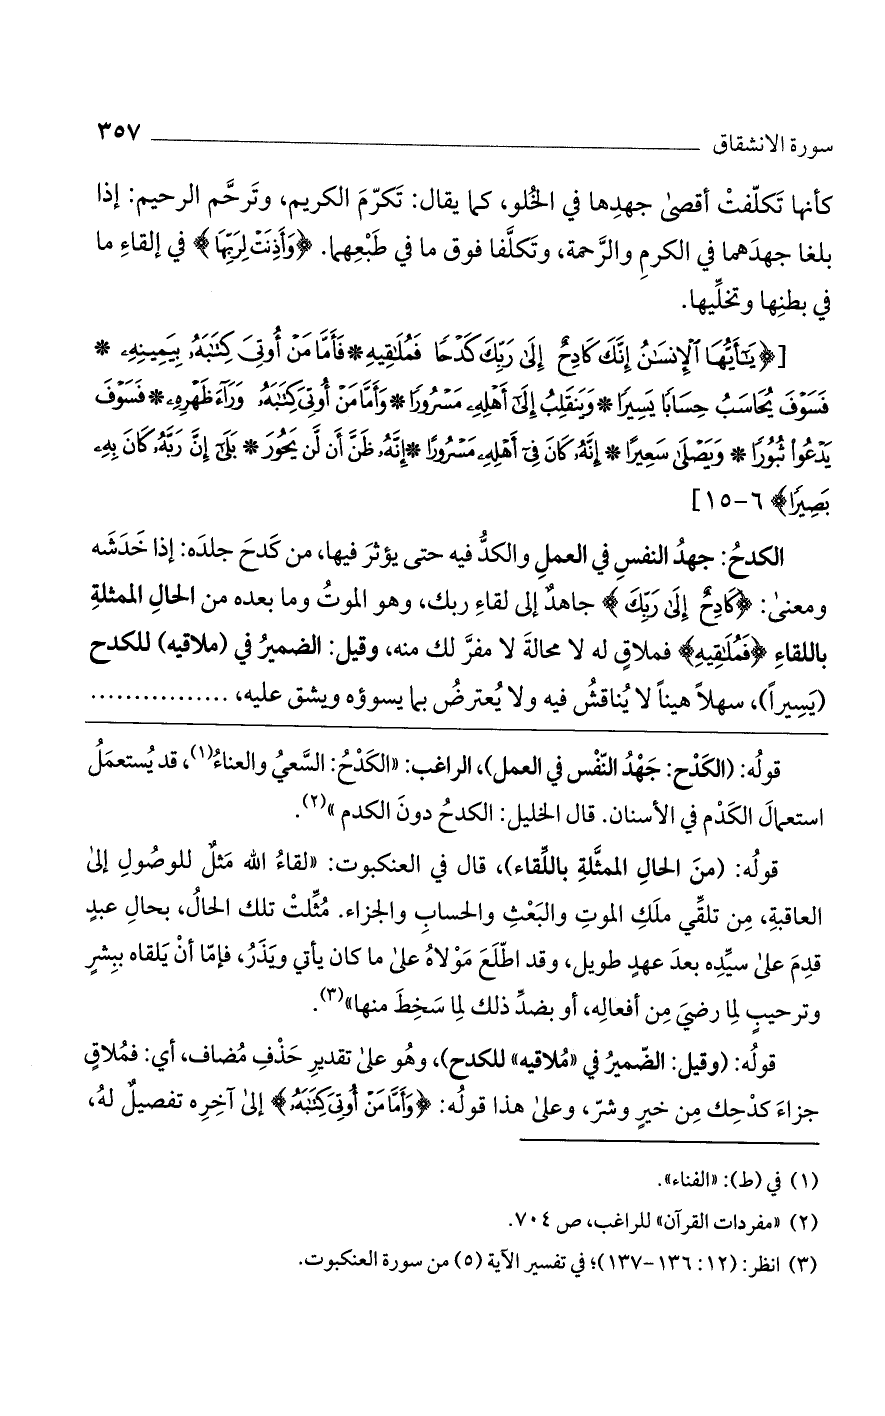 سورة الانشقاق ــــــــــــــــــــ ٣٥٧
كأنها تَكلّفتْ أقصىٰ جهدِها في الخُلو، كما يقال: تَكرّمَ الكريم، وتَرحَّم الرحيم: إذا
بلغا جهدَهما في الكرمِ والرَّحمة، وتَكلَّفا فوق ما في طَبْعِهما. ﴿وَأَذِنَتْ لِرَبِّهَا﴾ في إلقاءِ ما
في بطنِها وتخلِّيها.
[﴿يَـٰٓأَيُّهَا ٱلْإِنسَـٰنُ إِنَّكَ كَادِحٌ إِلَىٰ رَبِّكَ كَدْحًا فَمُلَـٰقِيهِ * فَأَمَّا مَنْ أُوتِىَ كِتَـٰبَهُۥ بِيَمِينِهِۦ *
فَسَوْفَ يُحَاسَبُ حِسَابًا يَسِيرًا * وَيَنقَلِبُ إِلَىٰٓ أَهْلِهِۦ مَسْرُورًا * وَأَمَّا مَنْ أُوتِىَ كِتَـٰبَهُۥ وَرَآءَ ظَهْرِهِۦ * فَسَوْفَ
يَدْعُواْ ثُبُورًا * وَيَصْلَىٰ سَعِيرًا * إِنَّهُۥ كَانَ فِىٓ أَهْلِهِۦ مَسْرُورًا * إِنَّهُۥ ظَنَّ أَن لَّن يَحُورَ * بَلَىٰٓ إِنَّ رَبَّهُۥ كَانَ بِهِۦ
بَصِيرًا﴾ ٦-١٥]
الكدحُ: جهدُ النفسِ في العملِ والكدُّ فيه حتى يؤثرَ فيها، من كَدحَ جلدَه: إذا خَدَشَه
ومعنىٰ: ﴿كَادِحٌ إِلَىٰ رَبِّكَ﴾ جاهدٌ إلى لقاءِ ربك، وهو الموتُ وما بعده من الحالِ الممثلةِ
باللقاءِ ﴿فَمُلَـٰقِيهِ﴾ فملاقٍ له لا محالةَ لا مفرَّ لك منه، وقيل: الضميرُ في (ملاقيه) للكدح
(يَسِيراً)، سهلاً هيناً لا يُناقشُ فيه ولا يُعترضُ بما يسوؤه ويشق عليه، ................
قولُه: (الكَدْح: جَهْدُ النّفْس في العمل)، الراغب: «الكَدْحُ: السَّعيُ والعناءُ(١)، قد يُستعمَلُ
استعمالَ الكَدْم في الأسنان. قال الخليل: الكدحُ دونَ الكدم»(٢).
قولُه: (منَ الحالِ الممثَّلةِ باللِّقاء)، قال في العنكبوت: «لقاءُ الله مَثلٌ للوصُولِ إلىٰ
العاقبةِ، مِن تلقِّي ملَكِ الموتِ والبَعْثِ والحسابِ والجزاء. مُثِّلتْ تلك الحالُ، بحالِ عبدٍ
قدِمَ علىٰ سيِّدِه بعدَ عهدٍ طويل، وقد اطّلَعَ مَوْلاهُ علىٰ ما كان يأتي ويَذَرُ، فإمّا أنْ يَلقاه ببِشرٍ
وترحيبٍ لِما رضيَ مِن أفعالِه، أو بضدِّ ذلك لِما سَخِطَ منها»(٣).
قولُه: (وقيل: الضّميرُ في «مُلاقيه» للكدح)، وهُو علىٰ تقديرِ حَذْفِ مُضاف، أي: فمُلاقٍ
جزاءَ كدْحِك مِن خيرٍ وشرّ، وعلىٰ هذا قولُه: ﴿وَأَمَّا مَنْ أُوتِىَ كِتَـٰبَهُۥ﴾ إلىٰ آخِرِه تفصيلٌ لهُ،
(١) في (ط): «الفناء».
(٢) «مفردات القرآن» للراغب، ص ٧٠٤.
(٣) انظر: (١٢: ١٣٦-١٣٧)؛ في تفسير الآية (٥) من سورة العنكبوت.